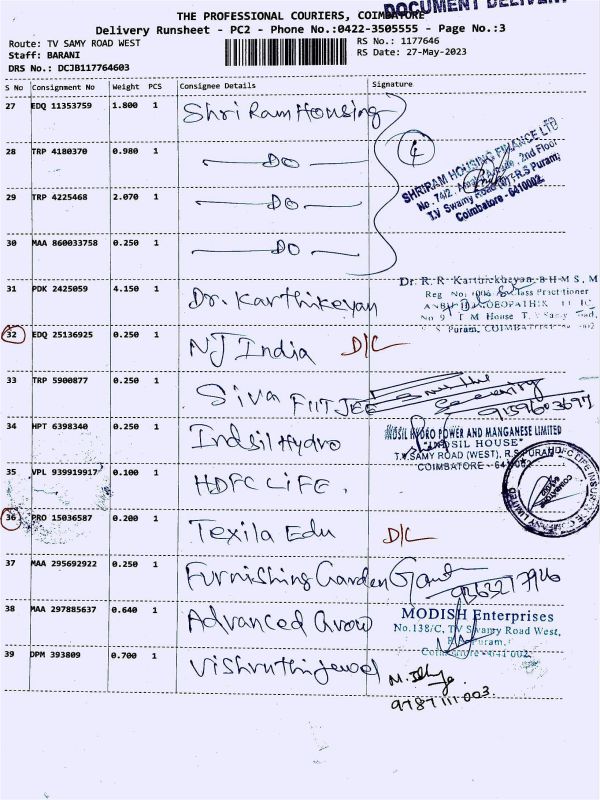 DOCUMENT DELIVERY
THE PROFESSIONAL COURIERS, COIMBATORE
Delivery Runsheet - PC2 - Phone No.:0422-3505555 - Page No.:3
Route: TV SAMY ROAD WEST
RS No.: 1177646
Staff: BARANI
RS Date: 27-May-2023
DRS No.: DCJB117764603
S No Consignment No Weight PCS Consignee Details Signature
27 EDQ 11353759 1.800 1 Shri Ram Housing
28 TRP 4180370 0.980 1 DO
4
SHRIRAM HOUSING FINANCE LTD
2nd Floor
T.V Swamy Road R.S Puram,
Coimbatore - 641002.
29 TRP 4225468 2.070 1 DO
30 MAA 860033758 0.250 1 DO
31 PDK 2425059 4.150 1 Dr. Karthikeyan
Dr. R. R. Karthickheyan, B H M S, M
Reg No. Class Practitioner
No 9 T M House T. V Samy Road,
Puram, COIMBATORE
32 EDQ 25136925 0.250 1 NJ India D/L
33 TRP 5900877 0.250 1 Siva FIITJEE
Security
34 HPT 6398340 0.250 1 Indsil Hydro
INDSIL HYDRO POWER AND MANGANESE LIMITED
"INDSIL HOUSE"
T.V.SAMY ROAD (WEST), R.S.PURAM
COIMBATORE - 641 002
35 VPL 939919917 0.100 1 HDFC LiFE.
HDFC LIFE INSURANCE COMPANY LIMITED
COIMBATORE
36 PRO 15036587 0.200 1 Texila Edu D/L
37 MAA 295692922 0.250 1 Furnishing Garden
38 MAA 297885637 0.640 1 Advanced Grow
MODISH Enterprises
No.138/C, TV Swamy Road West,
Puram,
Coimbatore - 641 002.
39 DPM 393809 0.700 1 Vishruthi jewel
9787111003.